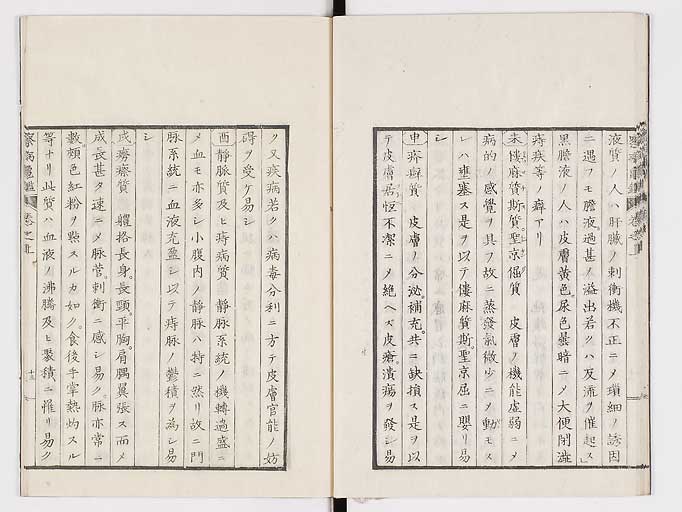 液質ノ人ハ肝臓ノ刺衝機不正ニメ瑣細ノ誘因
ニ遇フモ膽液過甚ノ溢出若クハ反流ヲ催起ス
黒膽液ノ人ハ皮膚黄色尿色曇暗ニメ大便閉澁
痔疾等ノ癖アリ
未 僂麻質斯質聖京倔質 皮膚ノ機能虚弱ニメ
病的ノ感覺ヲ具フ故ニ蒸發氣微少ニメ動モス
レハ壅塞ス是ヲ以テ僂麻質斯聖京屈ニ嬰リ易
シ
申 疥癬質 皮膚ノ分泌補充共ニ缺損ス是ヲ以
テ皮膚居恒不潔ニメ絶ヘス皮瘡潰瘍ヲ發シ易
ク又疾病若クハ病毒分利ニ方テ皮膚官能ノ妨
碍ヲ受ケ易シ
酉 靜脈質及ヒ痔病質 靜脈系統ノ機轉過盛ニ
メ血モ亦多シ小腹内ノ靜脈ハ特ニ然リ故ニ門
脉系統ニ血液充盈シ以テ痔脉ノ鬱積ヲ為シ易
シ
戌 癆瘵質 軀挌長身長頸平胸肩髃翼張ス而メ
成長甚タ速ニメ脉管刺衝ニ感シ易ク脉亦常ニ
數頰色紅粉ヲ㸃スルカ如ク食後手掌熱灼スル
等ナリ此質ハ血液ノ沸騰及ヒ聚積ニ罹リ易ク
卷之
十五